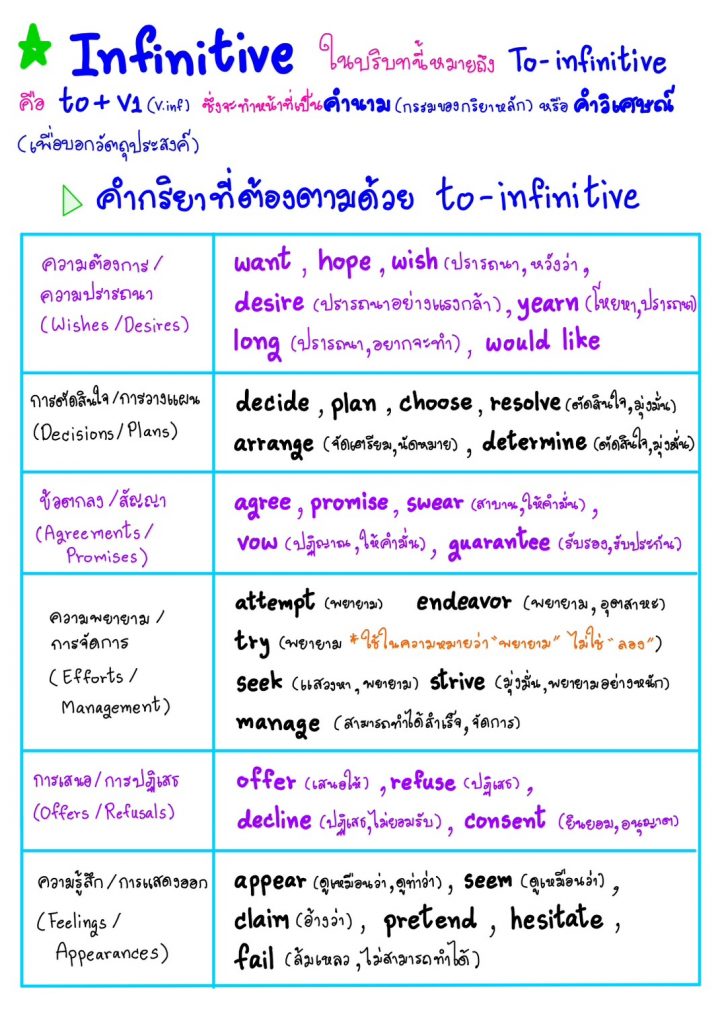 Infinitive ในบริบทนี้หมายถึง To-infinitive
คือ to + V1 (V.inf) ซึ่งจะทำหน้าที่เป็นคำนาม (กรรมของกริยาหลัก) หรือ คำวิเศษณ์
(เพื่อบอกวัตถุประสงค์)
คำกริยาที่ต้องตามด้วย to-infinitive
ความต้องการ /
ความปรารถนา
(Wishes / Desires)
want , hope , wish (ปรารถนา, หวังว่า ,
desire (ปรารถนาอย่างแรงกล้า) , yearn (โหยหา,ปรารถนา)
long (ปรารถนา,อยากจะทำ) , would like
การตัดสินใจ /การวางแผน
(Decisions / Plans)
decide , plan , choose , resolve (ตัดสินใจ,มุ่งมั่น)
arrange (จัดเตรียม,นัดหมาย) , determine (ตัดสินใจ,มุ่งมั่น)
ข้อตกลง / สัญญา
(Agreements /
Promises)
agree , promise , swear (สาบาน,ให้คำมั่น) ,
vow (ปฏิญาณ,ให้คำมั่น) , guarantee (รับรอง,รับประกัน)
ความพยายาม /
การจัดการ
(Efforts /
Management)
attempt (พยายาม) endeavor (พยายาม, อุตสาหะ)
try (พยายาม *ใช้ในความหมายว่า "พยายาม" ไม่ใช่ "ลอง")
seek (แสวงหา , พยายาม) strive (มุ่งมั่น,พยายามอย่างหนัก)
manage (สามารถทำได้สำเร็จ,จัดการ)
การเสนอ/ การปฏิเสธ
(Offers / Refusals)
offer (เสนอให้) , refuse (ปฏิเสธ) ,
decline (ปฏิเสธ,ไม่ยอมรับ) , consent (ยินยอม,อนุญาต)
ความรู้สึก / การแสดงออก
(Feelings /
Appearances)
appear (ดูเหมือนว่า,ดูท่าว่า) , seem (ดูเหมือนว่า) ,
claim (อ้างว่า) , pretend , hesitate ,
fail (ล้มเหลว ,ไม่สามารถทำได้)